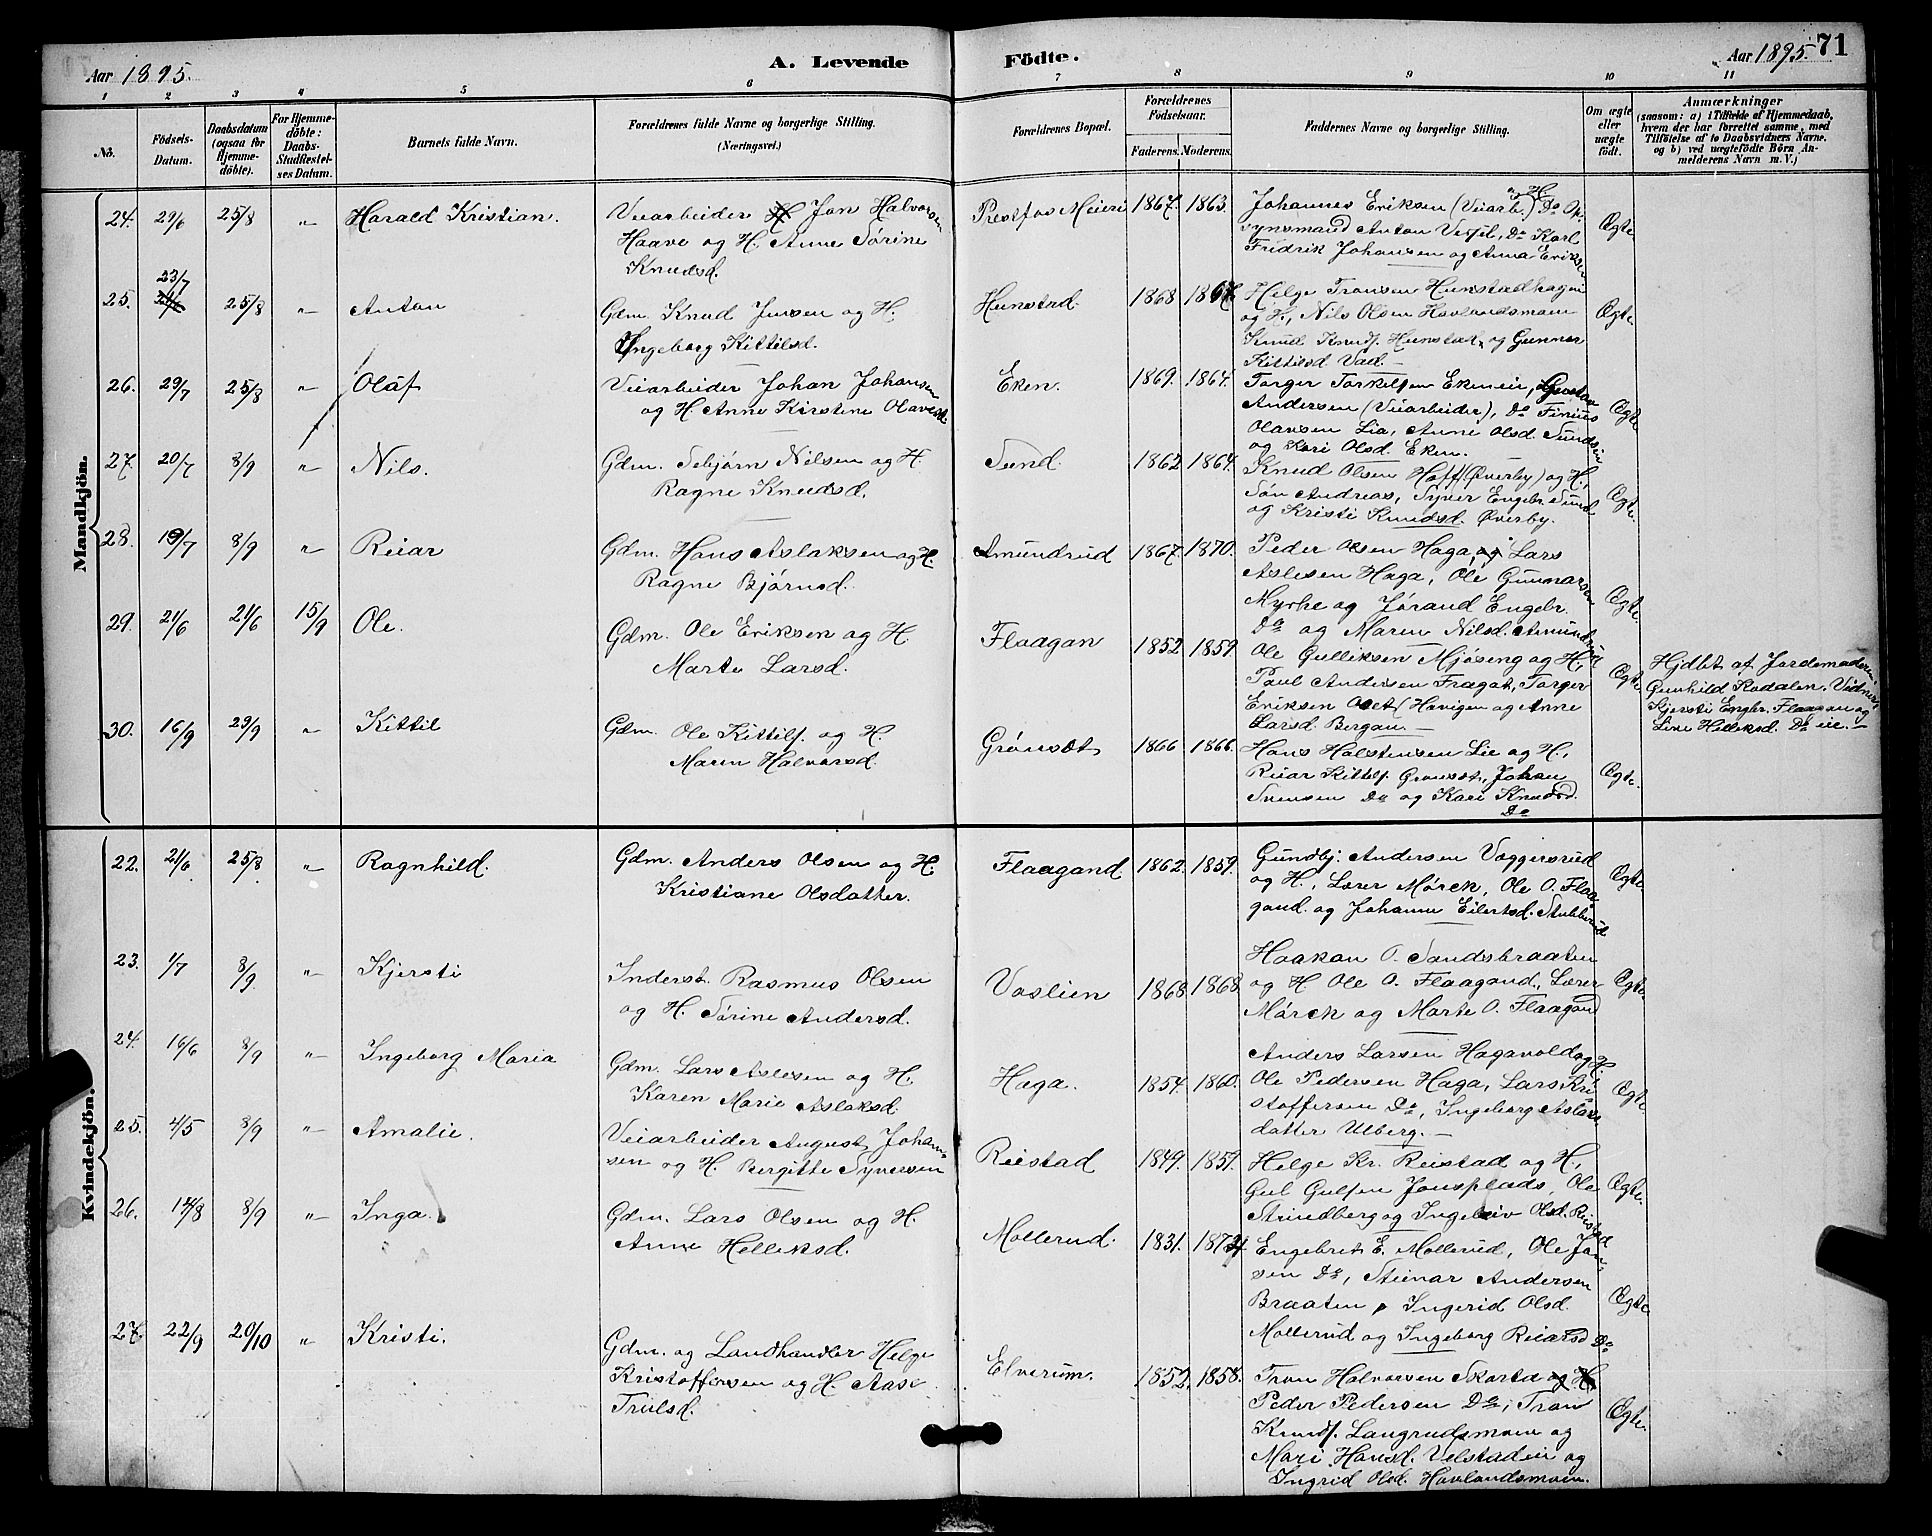 Aar 1895.
A. Levende Födte.
Aar 1895. 71
1 2 3 4 5 6 7 8 9 10 11
No. Födsels-Datum. Daabsdatum (ogsaa for Hjemme-döbte). For Hjemme-döbte: Daabs-Stadfæstel-ses Datum. Barnets fulde Navn. Forældrenes fulde Navne og borgerlige Stilling. (Næringsvei.) Forældrenes Bopæl. Forældrenes Födselsaar. Faderens. Moderens. Faddernes Navne og borgerlige Stilling. Om ægte eller uægte födt. Anmærkninger (saasom: a) i Tilfælde af Hjemmedaab, hvem der har forrettet samme, med Tilföielse af to Daabsvidners Navne, og b) ved uægtefödte Börn Anmelderens Navn m. V.)
Mandkjön.
24. 29/6 25/8 " Harald Kristian. Veiarbeider Jon Halvorsen
Haave og H. Anne Sørine
Knudsd.
Prestfos Meieri 1867. 1863.
Johannes Eriksen (Veiarb.) og H. Do Op-
synsmand Anton Vessel, Do Karl
Fridrik Johansen og Anna Eriksen
Ægte
25. 23/7 25/8 " Anton Gdm. Knud Jensen og H.
Ingeborg Kittilsd.
Hunstad. 1868 1867.
Helge Tronsen Hunstadhagen
og H., Nils Olsen Hovlandsmoen
Knud Knuds. Hunstad, og Gunner
Kittilsd Vad.
Ægte
26. 29/7 25/8 " Olaf Veiarbeider Johan Johansen
og H. Anne Kirstine Olavesd.
Eken. 1869. 1864.
Torger Torkelsen Ekeneie, Gustav
Andersen (Veiarbeider), Do Finius
Olausen Lia, Anne Olsd. Sundsein
og Kari Olsd. Eken.
Ægte
27. 20/7 8/9 " Nils. Gdm. Sebjørn Nilsen og H.
Ragne Knudsd.
Sund. 1862 1864.
Knud Olsen Hoff (Øverby) og H,
Søn Andreas, Syver Engebr. Sund
og Kristi Knudsd. Øverby.
Ægte.
28. 19/7 8/9 " Reiar Gdm. Hans Aslaksen og H.
Ragne Bjørnsd.
Amundrud 1867. 1870.
Peder Olsen Haga, Lars
Aslesen Haga, Ole Gunnarsen
Myrhe og Jørand Engebr.
Do og Maren Nilsd. Amundrud
Ægte
29. 21/6 21/6 15/9 Ole. Gdm. Ole Eriksen og H.
Marte Larsd.
Flaagan 1852 1859.
Ole Gulliksen Mjøseng og H,
Paul Andersen Fragot, Torger
Eriksen og Anne
Larsd. Bergan.
Ægte
Hjdbt af Jordemoderen
Gunhild Rodalen. Vidner,
Kjersti Engebr. Flaagan og
Live Helleksd. Do eie.
30. 16/9 29/9 " Kittil Gdm. Ole Kittils. og H.
Maren Halvorsd.
Grønsæt 1866 1866.
Hans Halstensen Lie og H,
Reiar Kittils. Grønsæt, Johan
Svensen Do og Kari Knudsd.
Do
Ægte.
Kvindekjön.
22. 21/6 25/8 " Ragnhild. Gdm. Anders Olsen og H.
Kristiane Olsdatter.
Flaagand 1862. 1859.
Gundbj. Andersen Vaggersrud
og H., Lærer Mørch, Ole O. Flaa-
gand. og Johanne Eilertsd. Stubberud
Ægte.
23. 1/7 8/9 " Kjersti Inderst. Rasmus Olsen
og H. Sørine Andersd.
Vaslien 1868. 1868.
Haakon O. Sandsbraaten
og H Ole O. Flaagand, Lærer
Mørch og Marte O. Flaagand
Ægte.
24. 16/6 8/9 " Ingeborg Maria Gdm. Lars Aslesen og H.
Karen Marie Aslaksd.
Haga. 1854. 1860.
Anders Larsen Hagavold og H.
Ole Pedersen Haga, Lars Kri-
stoffersen Do, Ingeborg Aslaks-
datter Ulberg.
Ægte.
25. 4/5 8/9 " Amalie. Veiarbeider August Johan-
sen og H. Bergitte Syversen
Reistad 1849. 1859.
Helge Kr. Reistad og H,
Gul Gulsen Jonsplads, Ole
Strindberg og Ingebor Olsd. Reistad
Ægte.
26. 14/8 8/9 " Inga. Gdm. Lars Olsen og H.
Anne Helleksd.
Mollerud. 1831.
Engebret E. Mollerud, Ole Jon-
sen Do, Steinar Andersen
Braaten, Ingerid Olsd.
Mollerud og Ingeborg Reiarsd Do
Ægte
27. 22/9 20/10 " Kristi. Gdm. og Landhandler Helge
Kristoffersen og H. Aase
Trulsd.
Elverum. 1852. 1858.
Tron Halvorsen Skarta og H.
Peder Pedersen Do, Tron
Knuds. Langrudsmoen og
Mari Hansd. Velstadeie og
Ingrid Olsd. Hovlandsmoen.
Ægte.